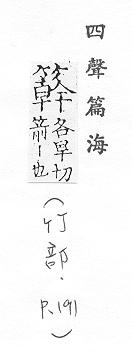 四聲篇海
干各旱切
箭丨也
(竹部.P.191)